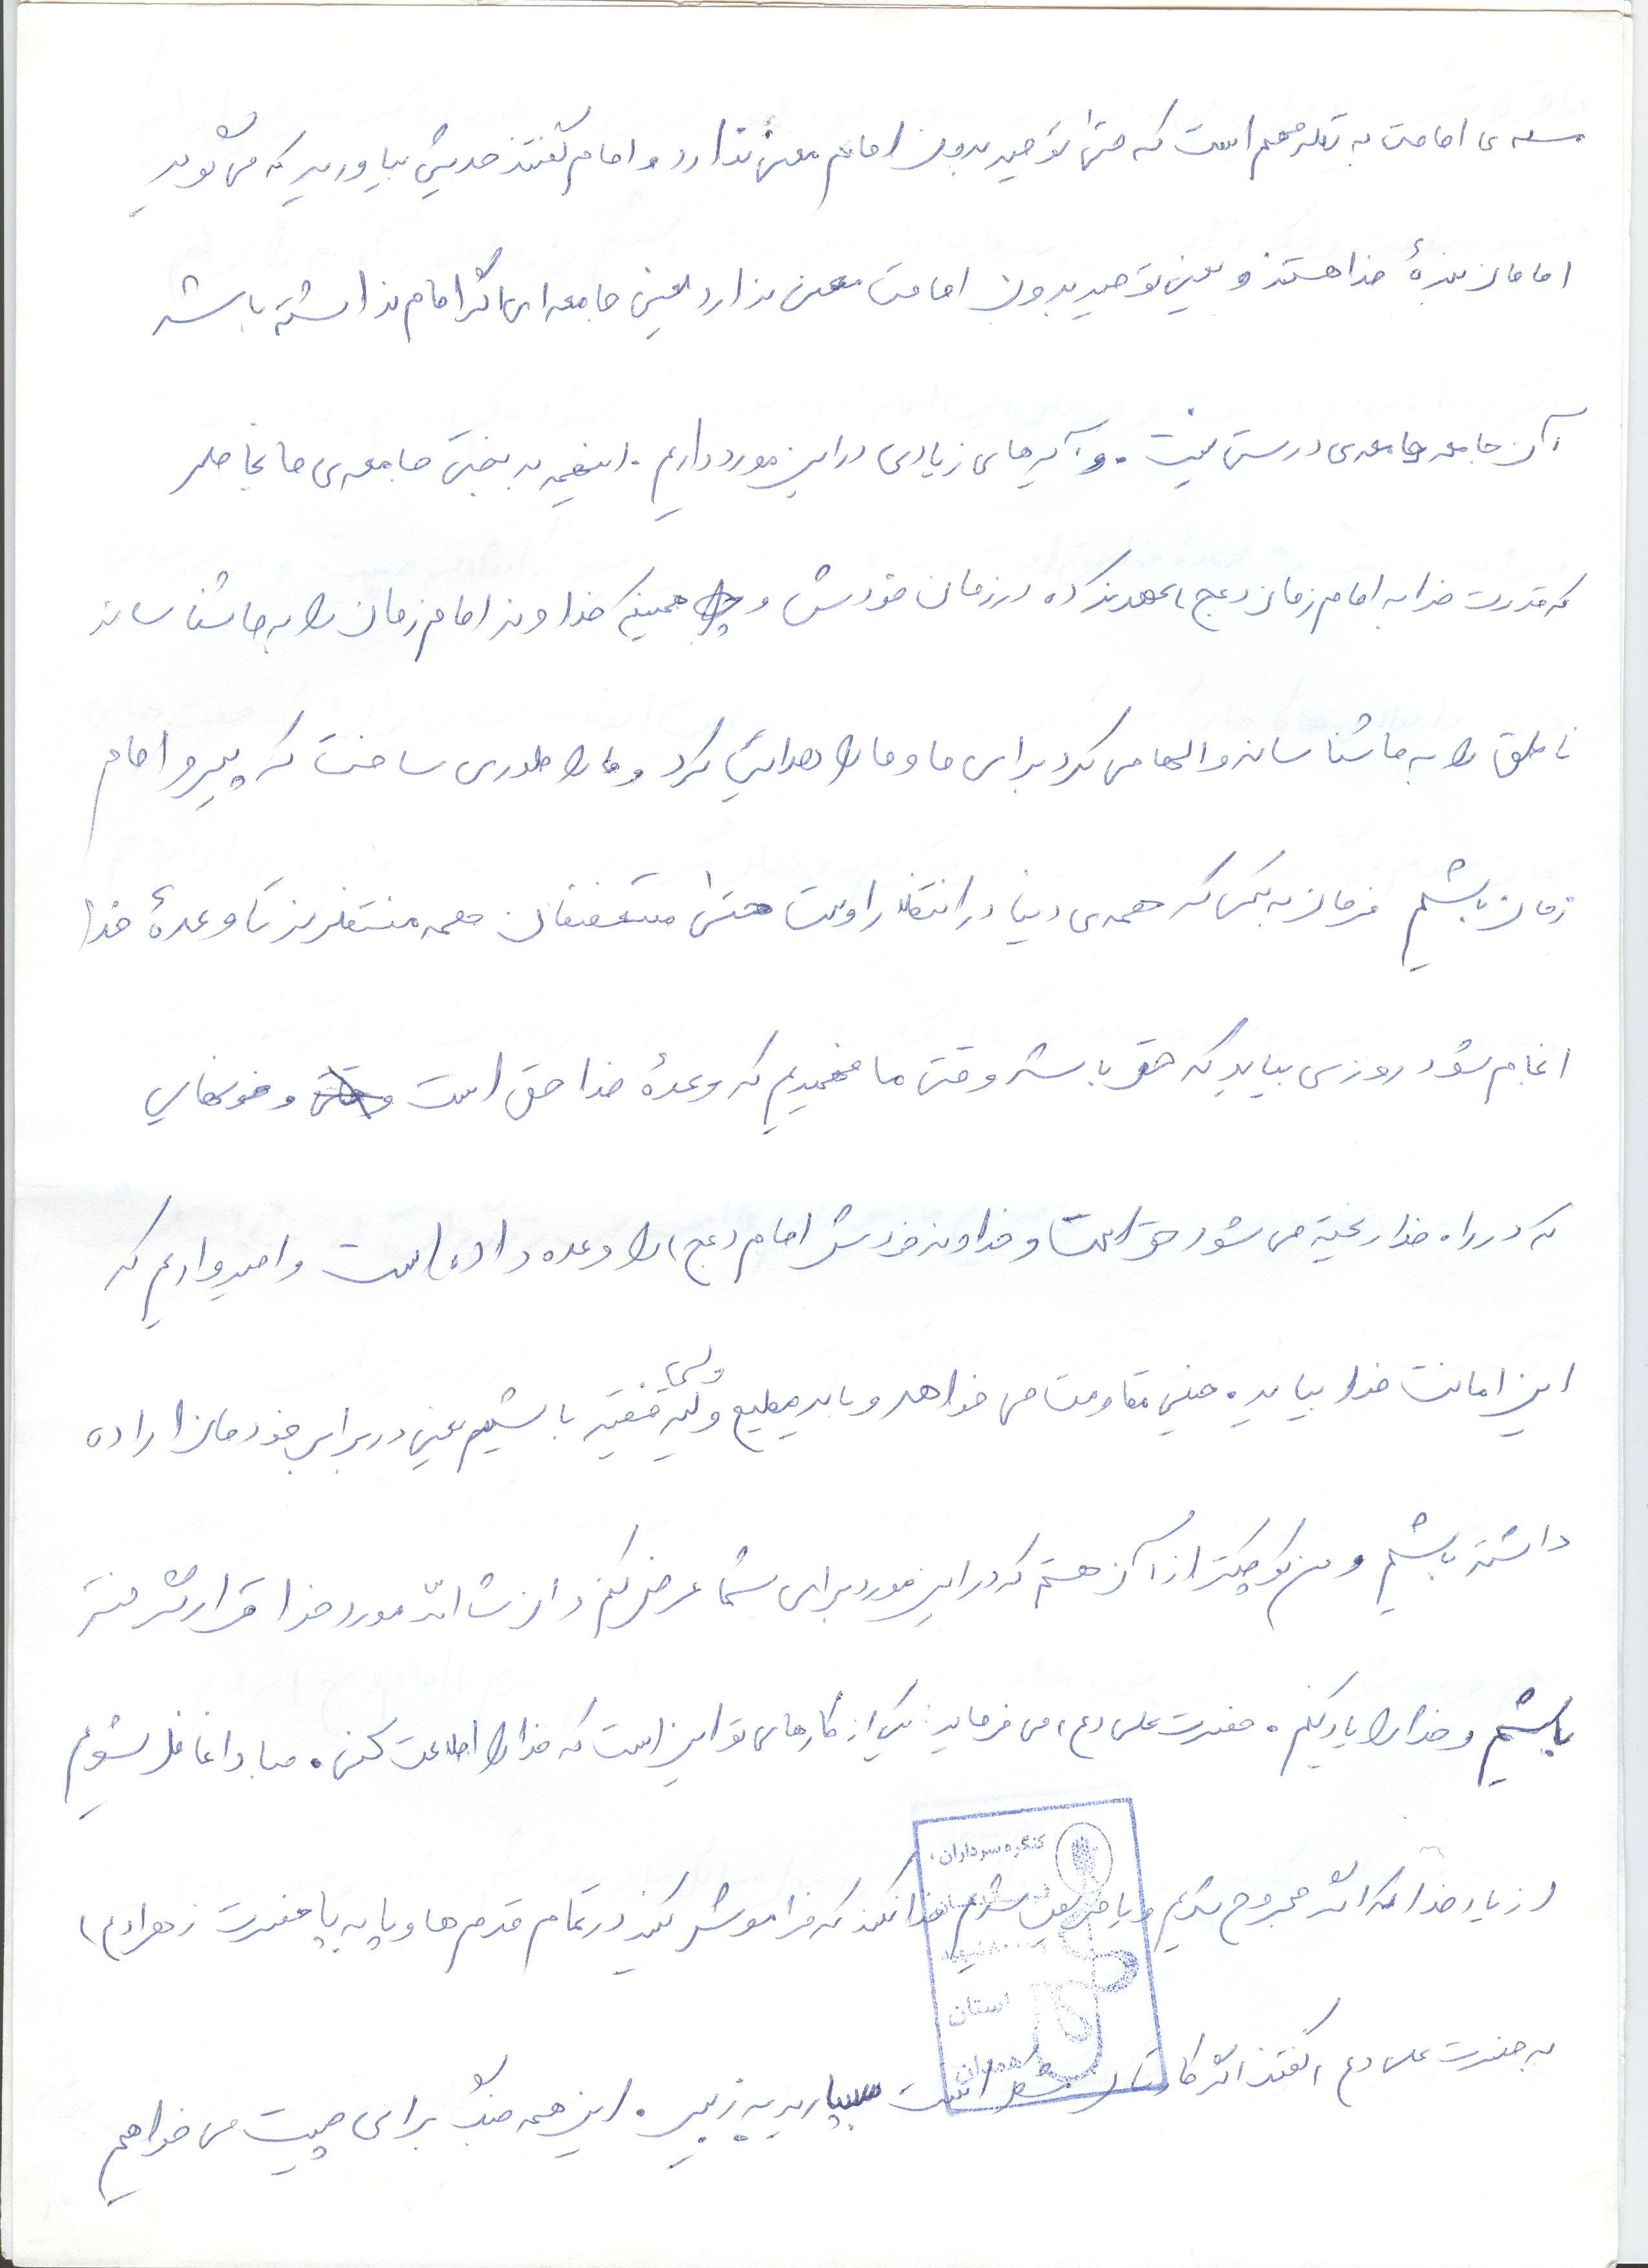 مسئله‌ی امامت به قدر مهم است که حتی توحید بدون امام معنی ندارد و امام گفتند حدیثی بیاورید که می گوید
امامان بندهٔ خدا هستند و یعنی توحید بدون امامت معنی ندارد یعنی جامعه ای اگر امام نداشته باشد
آن جامعه جامعه‌ی درستی نیست . و آیه های زیادی در این مورد داریم . اینهمه بدبختی جامعه‌ی ما بخاطر
که قدرت خدا به امام زمان (عج) در زمان خودش و همینکه خداوند امام زمان را به ما شناساند
ناطق را به ما شناساند و الهام می کرد برای ما و ما را هدایت کرد و ما را طوری ساخت که پیرو امام
زمان باشیم فرمان به کسی که همه‌ی دنیا در انتظار اوست حتی مستضعفان همه منتظرند تا وعدهٔ خدا
انجام شود روزی بیاید که حق باشد وقتی ما فهمیدیم که وعدهٔ خدا حق است و خونهایی
که در راه خدا ریخته می شود حق است و خداوند خودش امام (عج) را وعده داده است و امیدواریم که
این امانت خدا بیاید . خیلی مقاومت می خواهد و باید مطیع ولایت فقیه باشیم یعنی در برابر خودمان اراده
داشته باشیم و من کوچکتر از آن هستم که در این مورد برای شما عرض کنم و ان شاالله مورد خدا قرار گرفته
باشیم و خدا را یاد کنیم . حضرت علی (ع) می فرماید : یکی از کارهای تو این است که خدا را اطاعت کنی . مبادا غافل شویم
از یاد خدا که اگر مجروح شدیم و یا مریض شدیم خدا نکند که فراموش کنید در تمام قدم ها و پا به پا حضرت زهرا (ع)
به حضرت علی (ع) گفتند اگر است بسپارید به زبیر . این همه جنگ برای چیست می خواهم
کنگره سرداران
شهید
استان
همدان